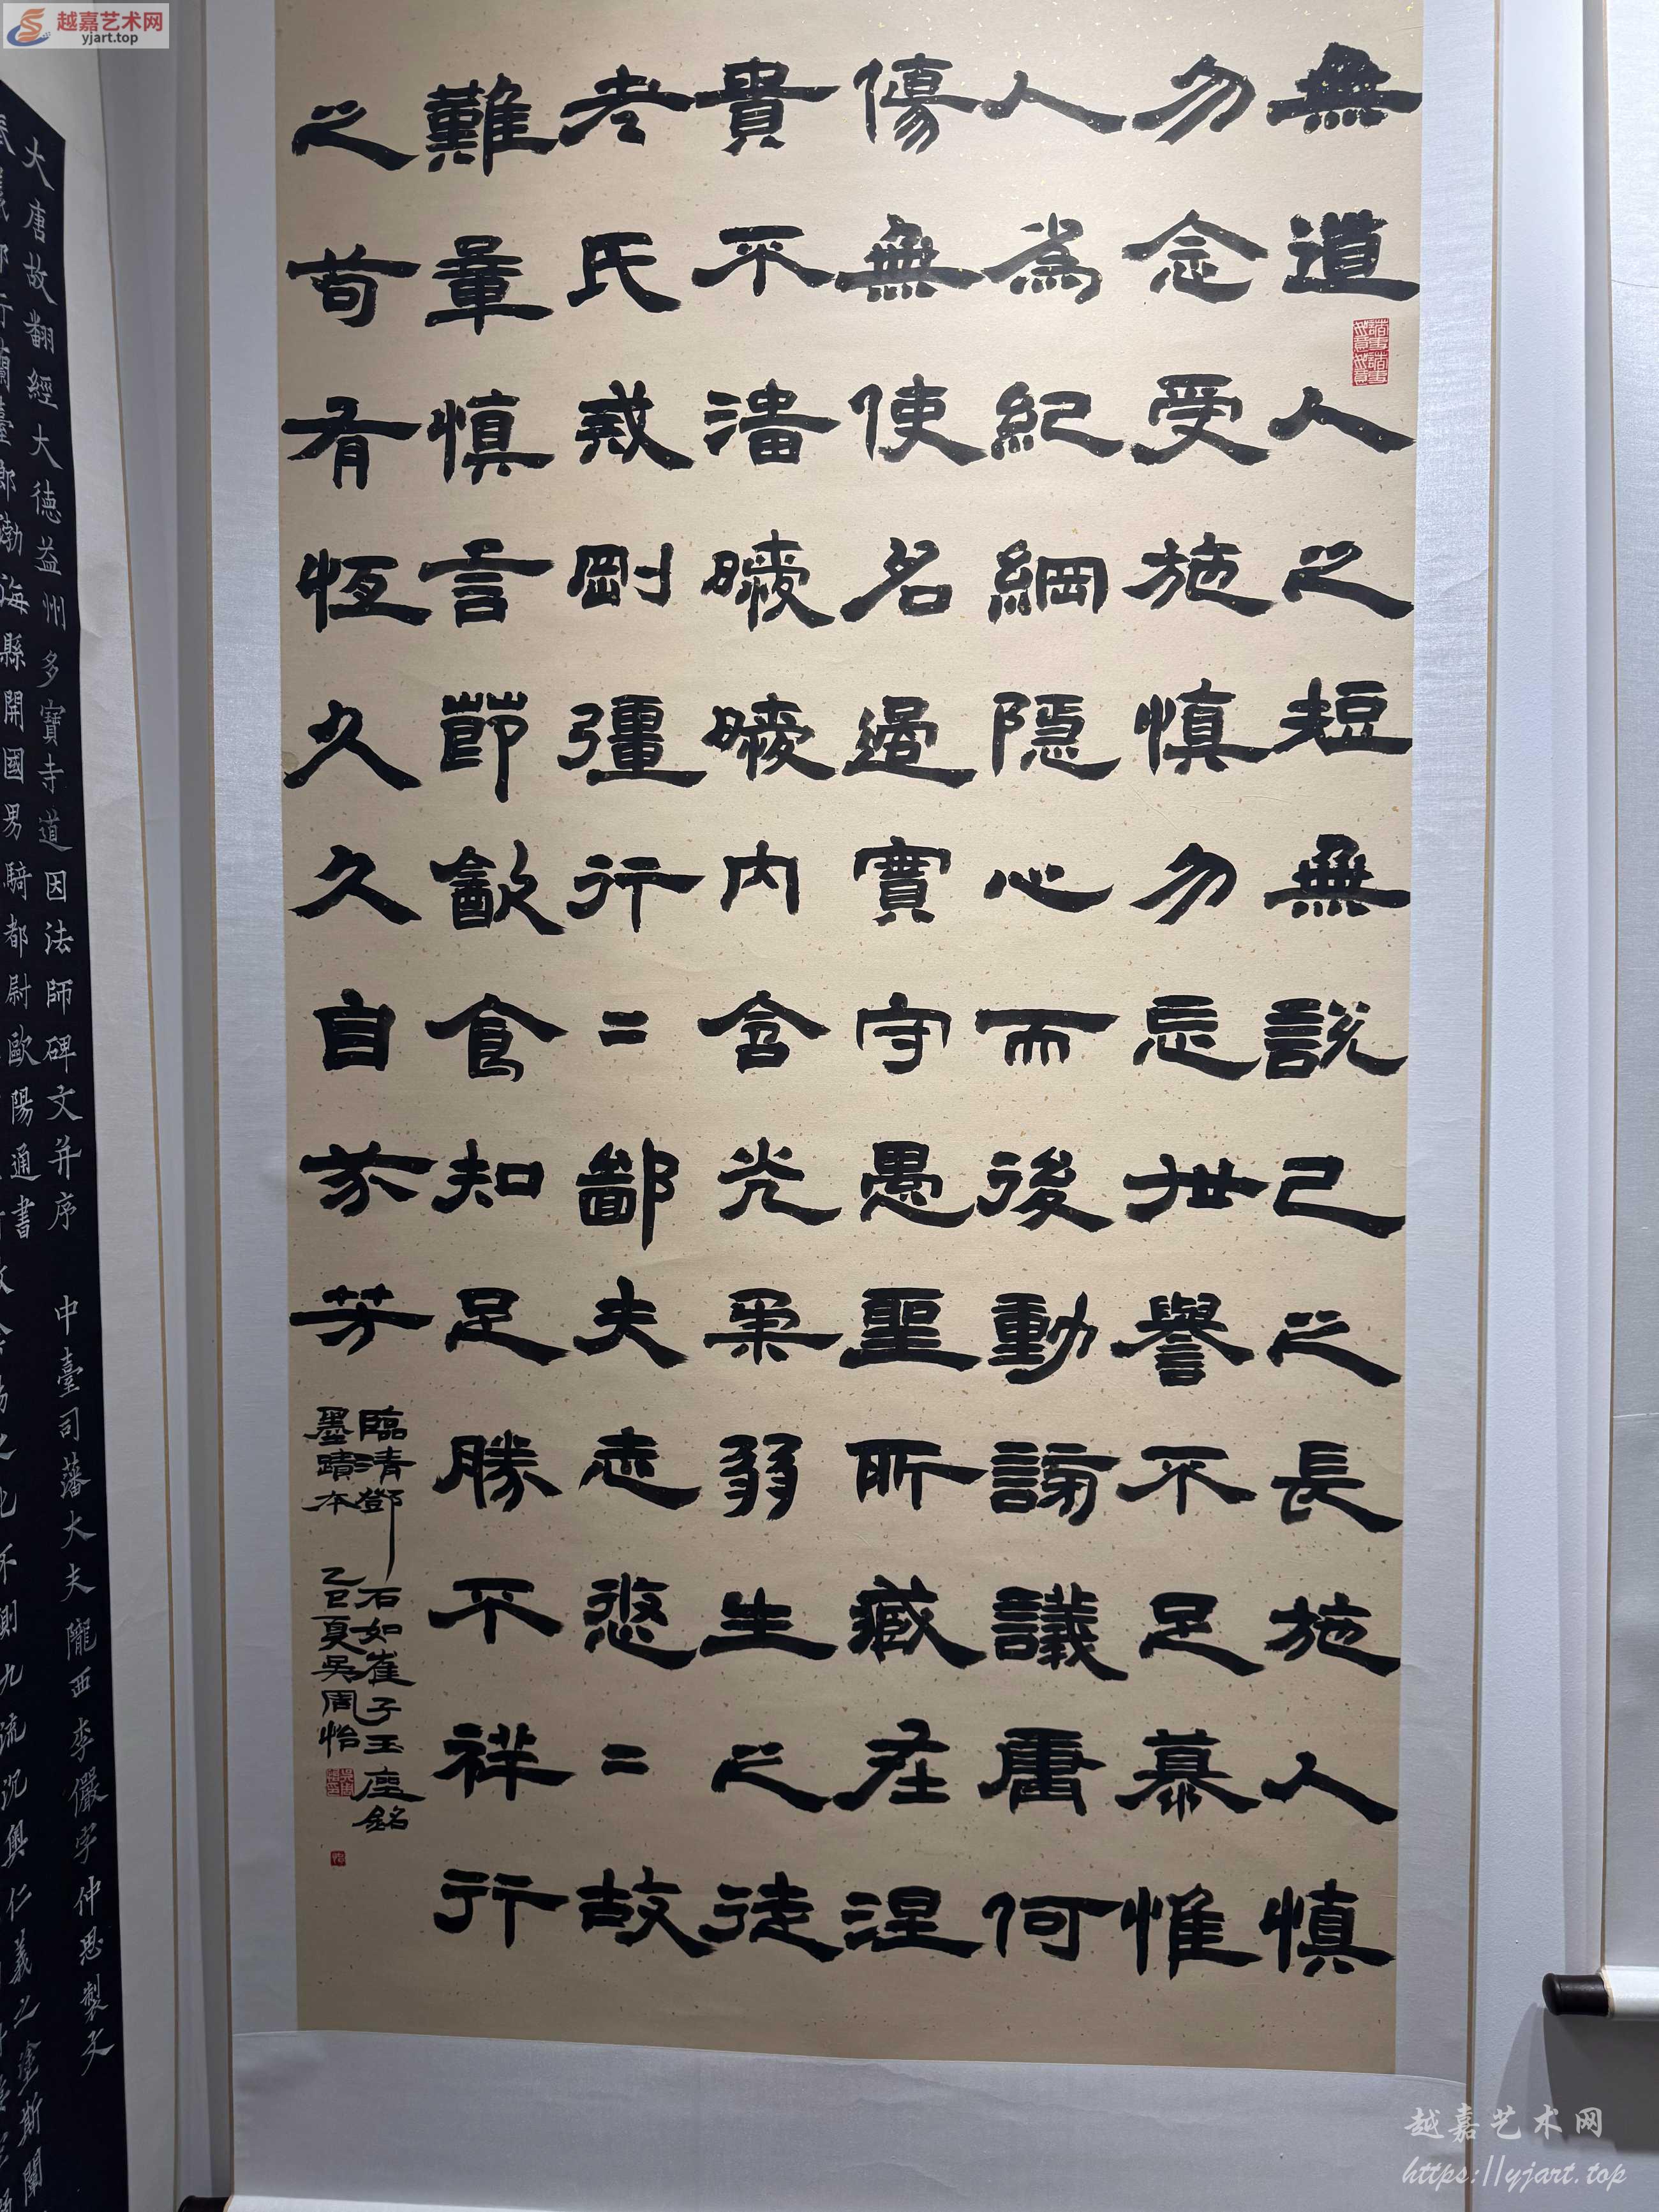 越嘉艺术网
yjart.top
無道人之短無說己之長施人慎
勿念受施慎勿忘世譽不足慕惟
人為紀綱隱心而後動謗議庸何
傷無使名過實守愚聖所臧在涅
貴不淄曖曖內含光柔弱生之徒
老氏戒剛彊行二鄙夫志悠二故
難量慎言節飲食知足勝不祥行
之苟有恆久久自芬芳
臨清鄧石如崔子玉座銘
墨蹟本 乙巳夏吳周怡
大唐故翻經大德益州多寶寺道因法師碑文并序 中臺司藩大夫隴西李儼字仲思製文
議郎行蘭臺郎渤海縣開國男騎都尉歐陽通書
越嘉艺术网
https://yjart.top